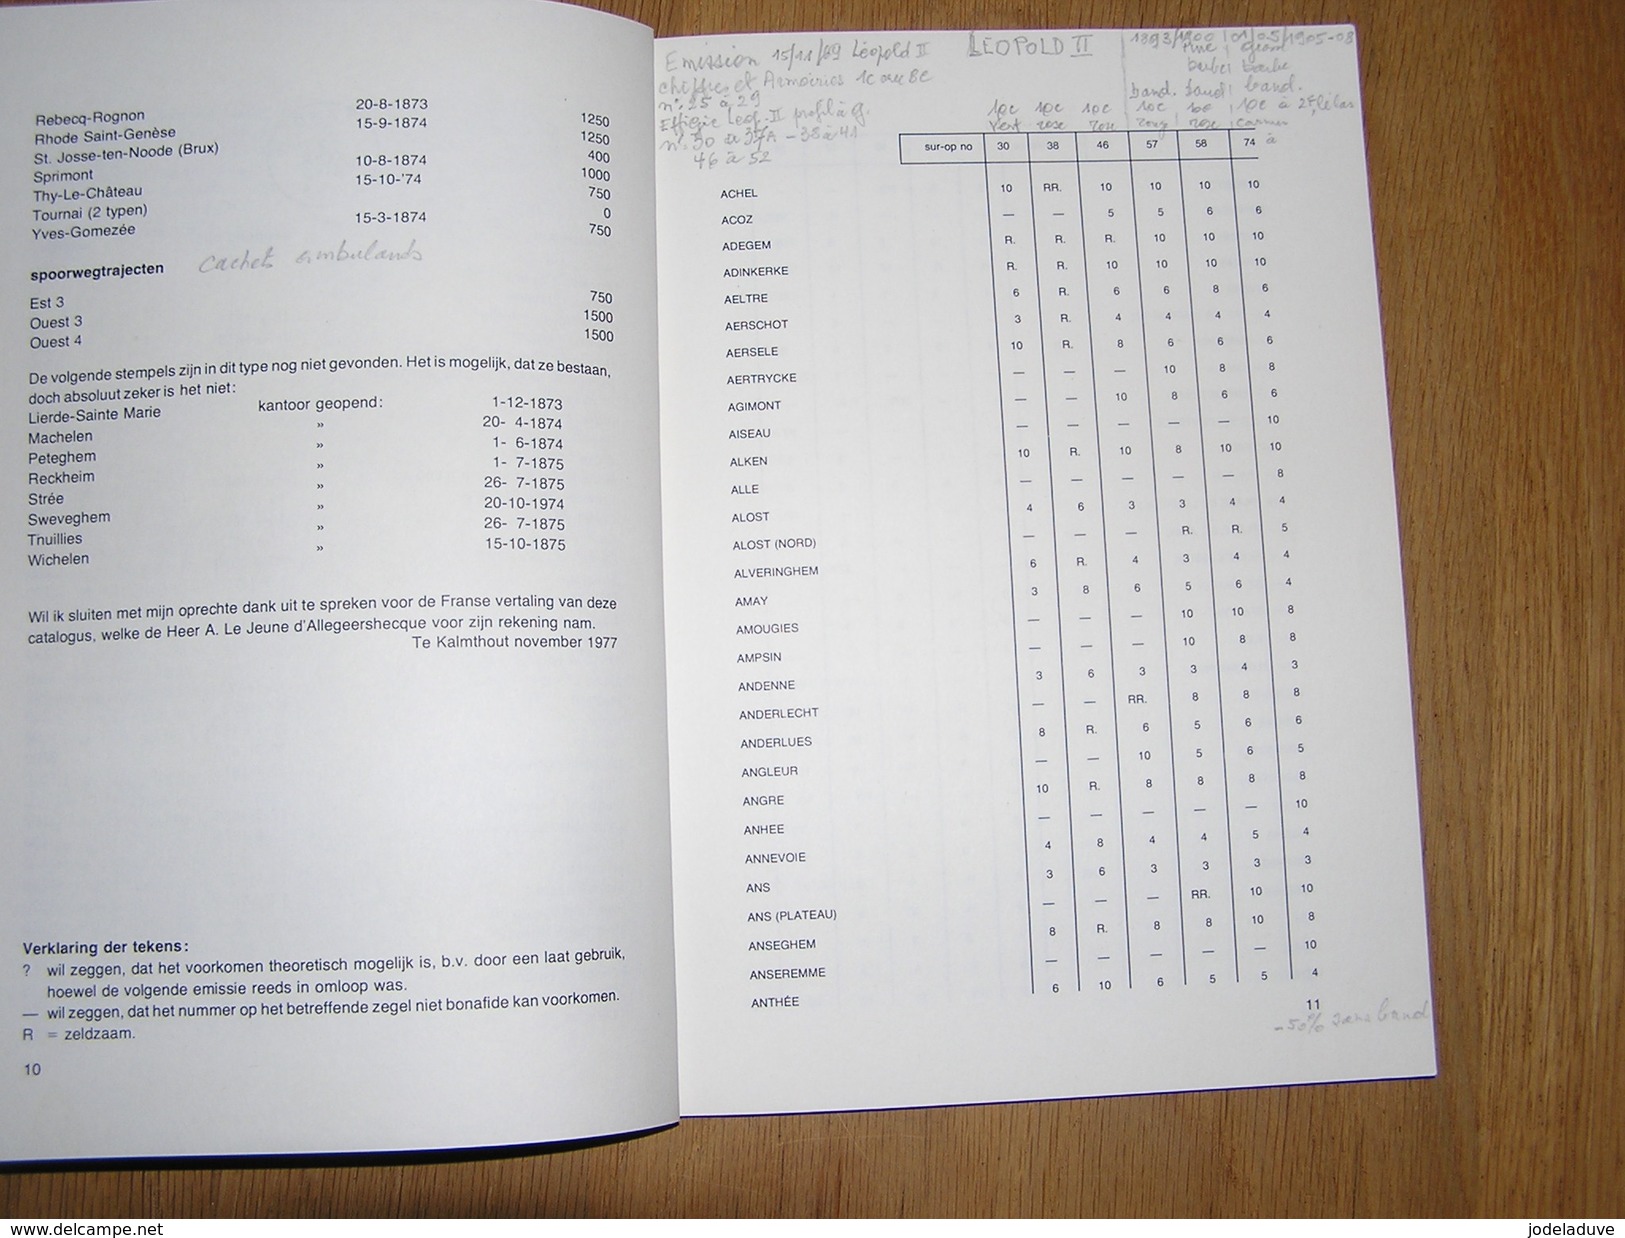 Rebecq-Rognon 20-8-1873 1250
Rhode Saint-Genèse 15-9-1874 1250
St. Josse-ten-Noode (Brux) 400
Sprimont 10-8-1874 1000
Thy-Le-Château 15-10-'74 750
Tournai (2 typen) 0
Yves-Gomezée 15-3-1874 750
spoorwegtrajecten Cachets ambulands
Est 3 750
Ouest 3 1500
Ouest 4 1500
De volgende stempels zijn in dit type nog niet gevonden. Het is mogelijk, dat ze bestaan,
doch absoluut zeker is het niet:
Lierde-Sainte Marie kantoor geopend: 1-12-1873
Machelen » 20- 4-1874
Peteghem » 1- 6-1874
Reckheim » 1- 7-1875
Strée » 26- 7-1875
Sweveghem » 20-10-1974
Thuillies » 26- 7-1875
Wichelen » 15-10-1875
Wil ik sluiten met mijn oprechte dank uit te spreken voor de Franse vertaling van deze
catalogus, welke de Heer A. Le Jeune d'Allegeershecque voor zijn rekening nam.
Te Kalmthout november 1977
Verklaring der tekens:
? wil zeggen, dat het voorkomen theoretisch mogelijk is, b.v. door een laat gebruik,
hoewel de volgende emissie reeds in omloop was.
— wil zeggen, dat het nummer op het betreffende zegel niet bonafide kan voorkomen.
R = zeldzaam.
10
Emission 15/11/89 Léopold II LÉOPOLD II 1893/1900 01/05/1905-08
chiffre et Armoiries 1c ou 8c
n° 25 à 29
Effigie Léop. II profil à g.
n° 30 à 37A - 38 à 41
46 à 52
band. band. band.
10c 10c 10c 10c 10c
vert rose rose rouge rose carmin
sur-op no 30 38 46 57 58 74 à
ACHEL 10 RR. 10 10 10 10
ACOZ — — 5 5 6 6
ADEGEM R. R. R. 10 10 10
ADINKERKE R. R. 10 10 10 10
AELTRE 6 R. 6 6 8 6
AERSCHOT 3 R. 4 4 4 4
AERSELE 10 R. 8 6 6 6
AERTRYCKE — — — 10 8 8
AGIMONT — — 10 8 6 6
AISEAU — — — — — 10
ALKEN 10 R. 10 8 10 10
ALLE — — — — — 8
ALOST 4 6 3 3 4 4
ALOST (NORD) — — — R. R. 5
ALVERINGHEM 6 R. 4 3 4 4
AMAY 3 8 6 5 6 4
AMOUGIES — — — 10 10 8
AMPSIN — — — 10 8 8
ANDENNE 3 6 3 3 4 3
ANDERLECHT — — RR. 8 8 8
ANDERLUES 8 R. 6 5 6 6
ANGLEUR — — 10 5 6 5
ANGRE 10 R. 8 8 8 8
ANHEE — — — — — 10
ANNEVOIE 4 8 4 4 5 4
ANS 3 6 3 3 3 3
ANS (PLATEAU) — — — RR. 10 10
ANSEGHEM 8 R. 8 8 10 8
ANSEREMME — — — — — 10
ANTHÉE 6 10 6 5 5 4
11
-50% sans band
www.delcampe.net
jodeladuve